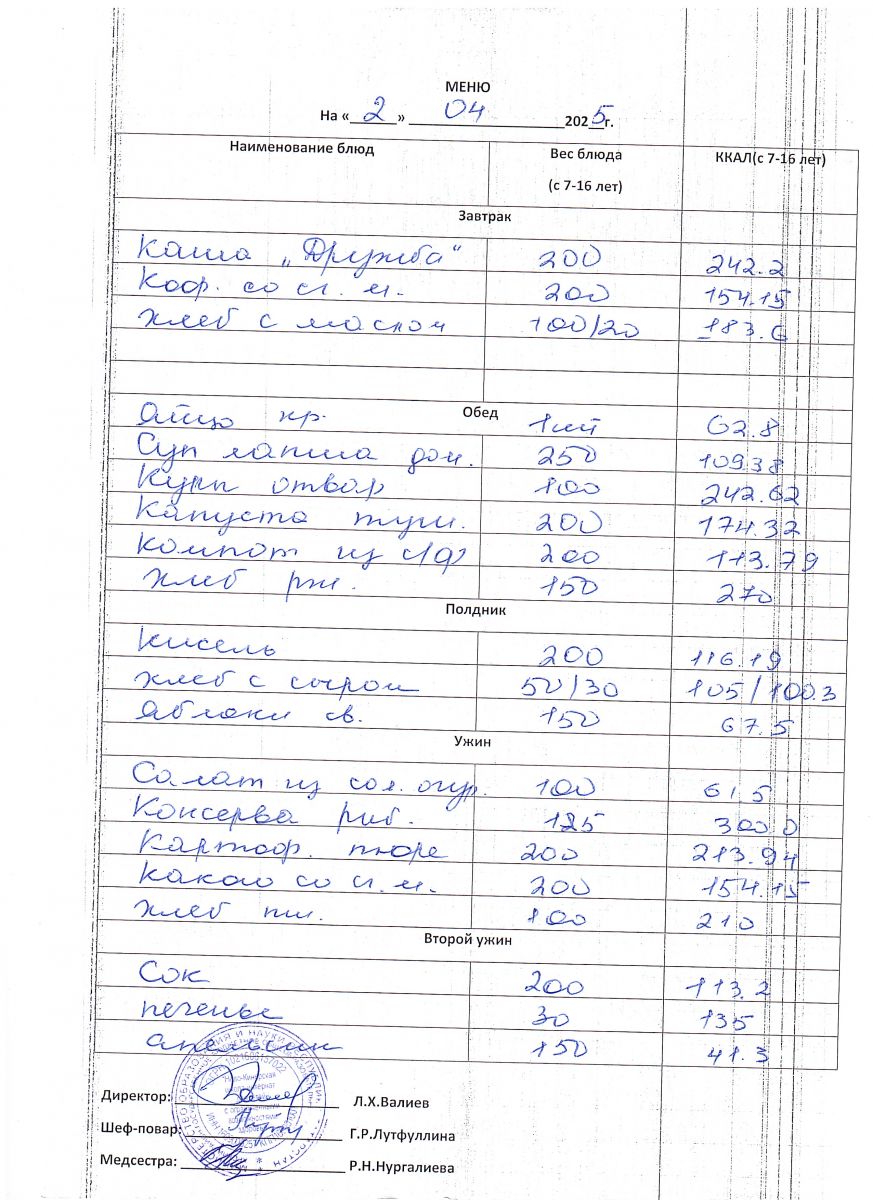 МЕНЮ
На « 2 » 04 2025г.
Наименование блюд Вес блюда (с 7-16 лет) ККАЛ(с 7-16 лет)
Завтрак
Каша „Дружба“ 200 242.2
Коф. со сг. м. 200 154.15
Хлеб с маслом 100/20 183.6
Обед
Яйцо кр. 1шт 62.8
Суп лапша дом. 250 109.38
Куры отвар 100 242.62
Капуста туш. 200 174.32
Компот из с/ф 200 113.79
Хлеб рж. 150 270
Полдник
Кисель 200 116.19
Хлеб с сыром 50/30 105/100.3
Яблоки св. 150 67.5
Ужин
Салат из сол. огур. 100 61.5
Консерва рыб. 125 300.0
Картоф. пюре 200 213.94
Какао со сг. м. 200 154.15
Хлеб пш. 100 210
Второй ужин
Сок 200 113.2
печенье 30 135
апельсин 150 41.3
Директор: Л.Х.Валиев
Шеф-повар: Г.Р.Лутфуллина
Медсестра: Р.Н.Нургалиева